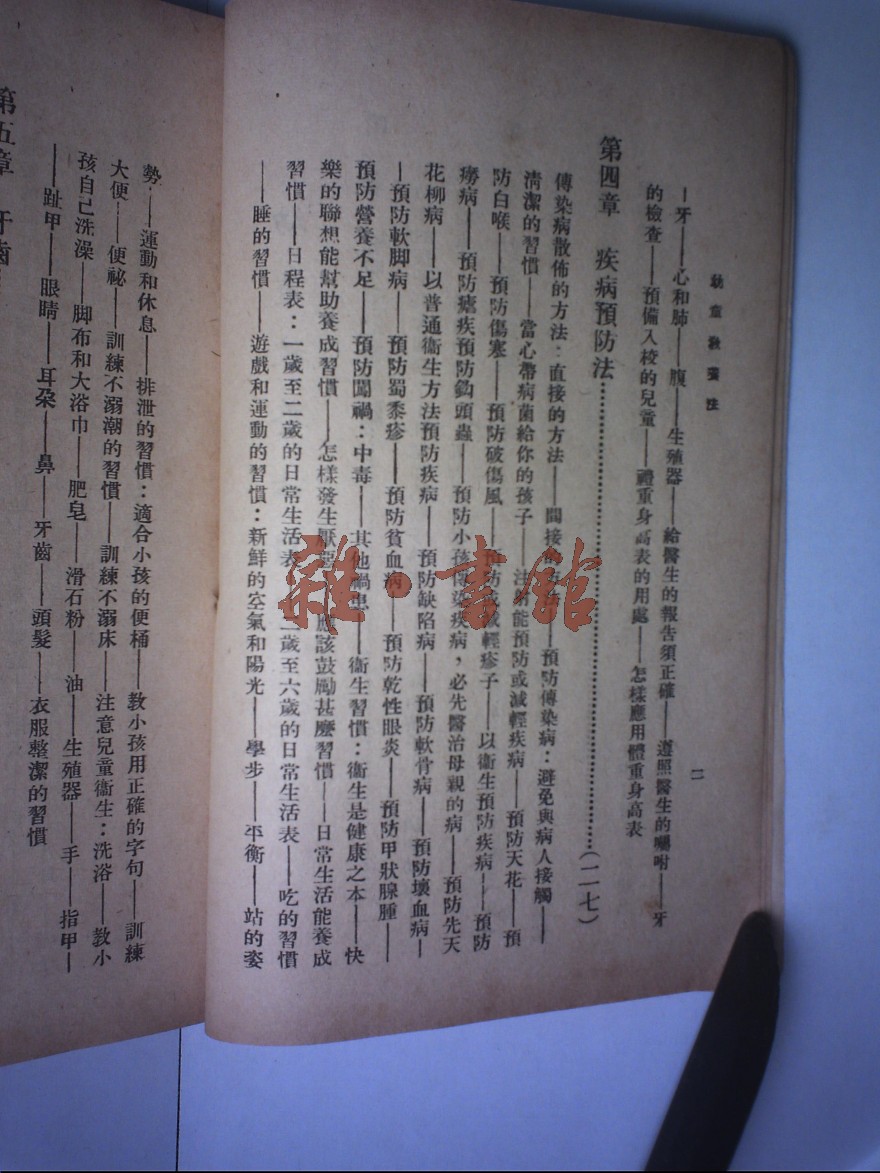 幼童教養法
二
—牙——心和肺——腹——生殖器——給醫生的報告須正確——遵照醫生的囑咐——牙
的檢查——預備入校的兒童——禮重身高表的用處——怎樣應用體重身高表
第四章　疾病預防法……………………………………(一一七)
傳染病散佈的方法：直接的方法——間接的方法——預防傳染病：避免與病人接觸——
清潔的習慣——當心帶病菌給你的孩子——注射能預防或減輕疾病——預防天花——預
防白喉——預防傷寒——預防破傷風——預防或減輕疹子——以衞生預防疾病——預防
癆病——預防瘧疾預防鈎頭蟲——預防小孩傳染疾病，必先醫治母親的病——預防先天
花柳病——以普通衞生方法預防疾病——預防缺陷病——預防軟骨病——預防壞血病—
—預防軟脚病——預防蜀黍疹——預防貧血病——預防乾性眼炎——預防甲狀腺腫——
預防營養不足——預防闖禍：中毒——其他禍患——衞生習慣：衞生是健康之本——快
樂的聯想能幫助養成習慣——怎樣發生厭惡——應該鼓勵甚麽習慣——日常生活能養成
習慣——日程表：一歲至二歲的日常生活表——二歲至六歲的日常生活表——吃的習慣
——睡的習慣——遊戲和運動的習慣：新鮮的空氣和陽光——學步——平衡——站的姿
勢——運動和休息——排泄的習慣：適合小孩的便桶——教小孩用正確的字句——訓練
大便——便祕——訓練不溺潮的習慣——訓練不溺床——注意兒童衞生：洗浴——教小
孩自己洗澡——脚布和大浴巾——肥皂——滑石粉——油——生殖器——手——指甲—
——趾甲——眼睛——耳朵——鼻——牙齒——頭髮——衣服整潔的習慣
第五章　牙齒
雜·書館